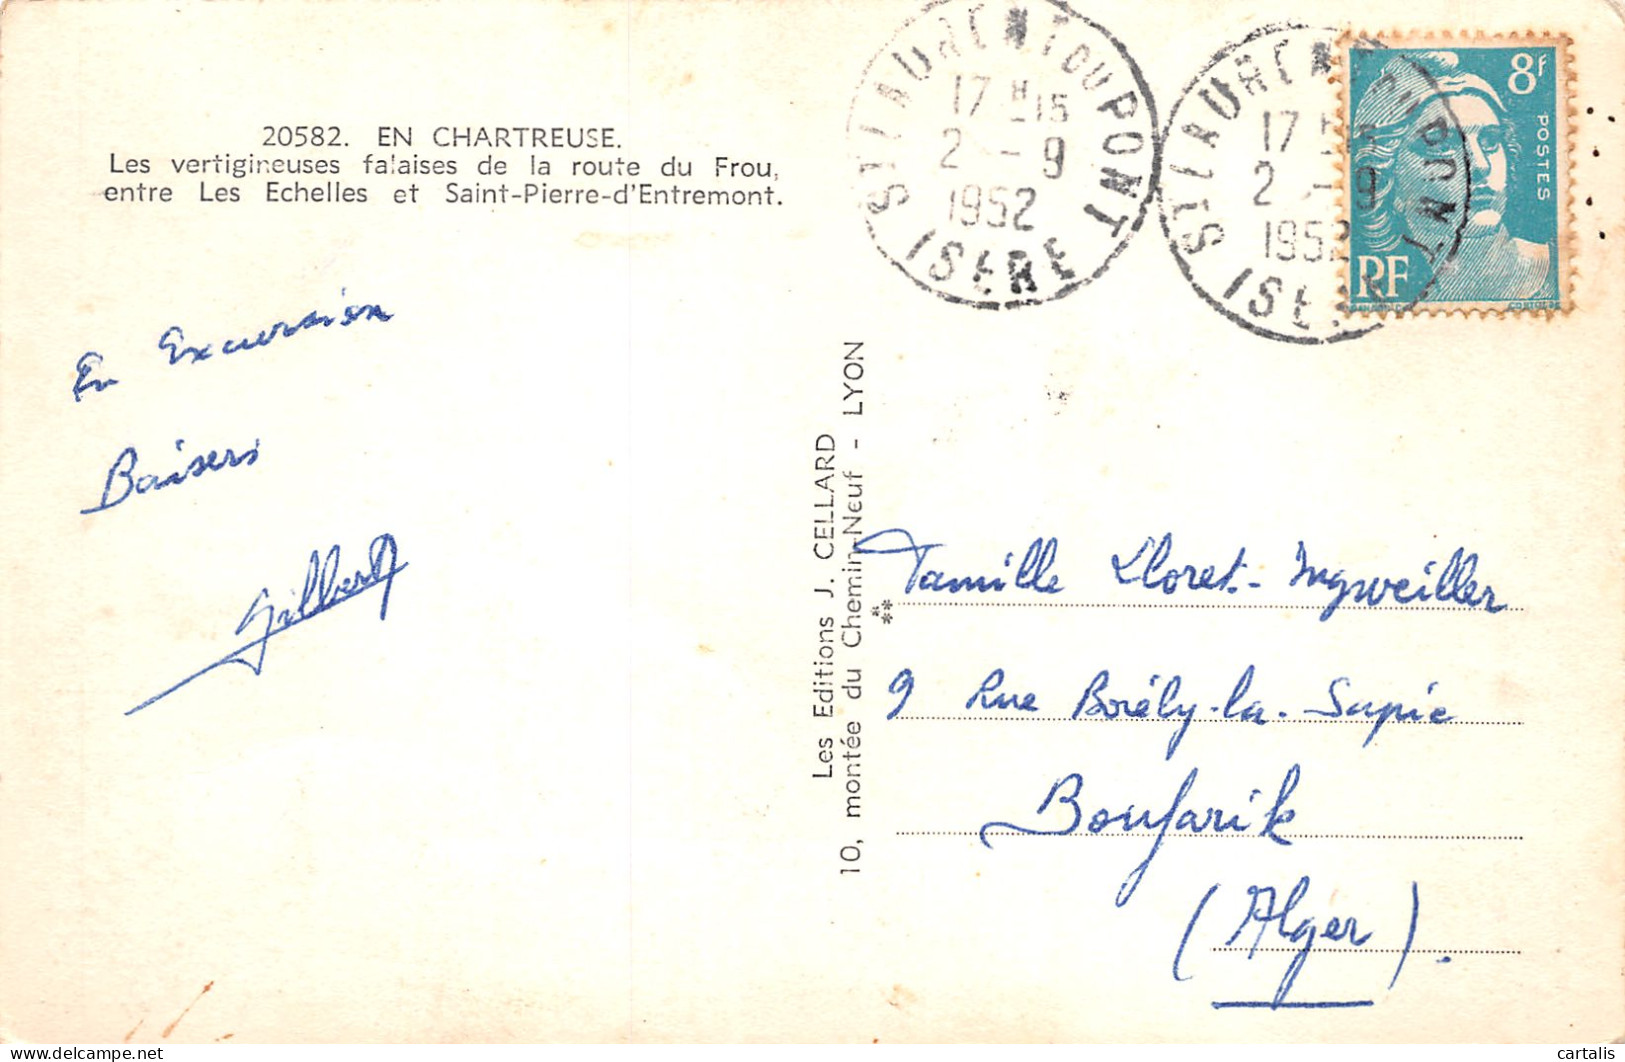 20582. EN CHARTREUSE.
Les vertigineuses falaises de la route du Frou,
entre Les Echelles et Saint-Pierre-d'Entremont.
ST LAURENT DU PONT
17 H 15
2 - 9
1952
ISERE
ST LAURENT DU PONT
17 H 15
2 - 9
1952
ISERE
8F
POSTES
RF
En Excursion
Baisers
Gilbert
Les Editions J. CELLARD
10, montée du Chemin-Neuf - LYON
Famille Lloret-Ingweiller
9 Rue Borély-la-Sapie
Boufarik
(Alger).
cartalis
delcampe.net